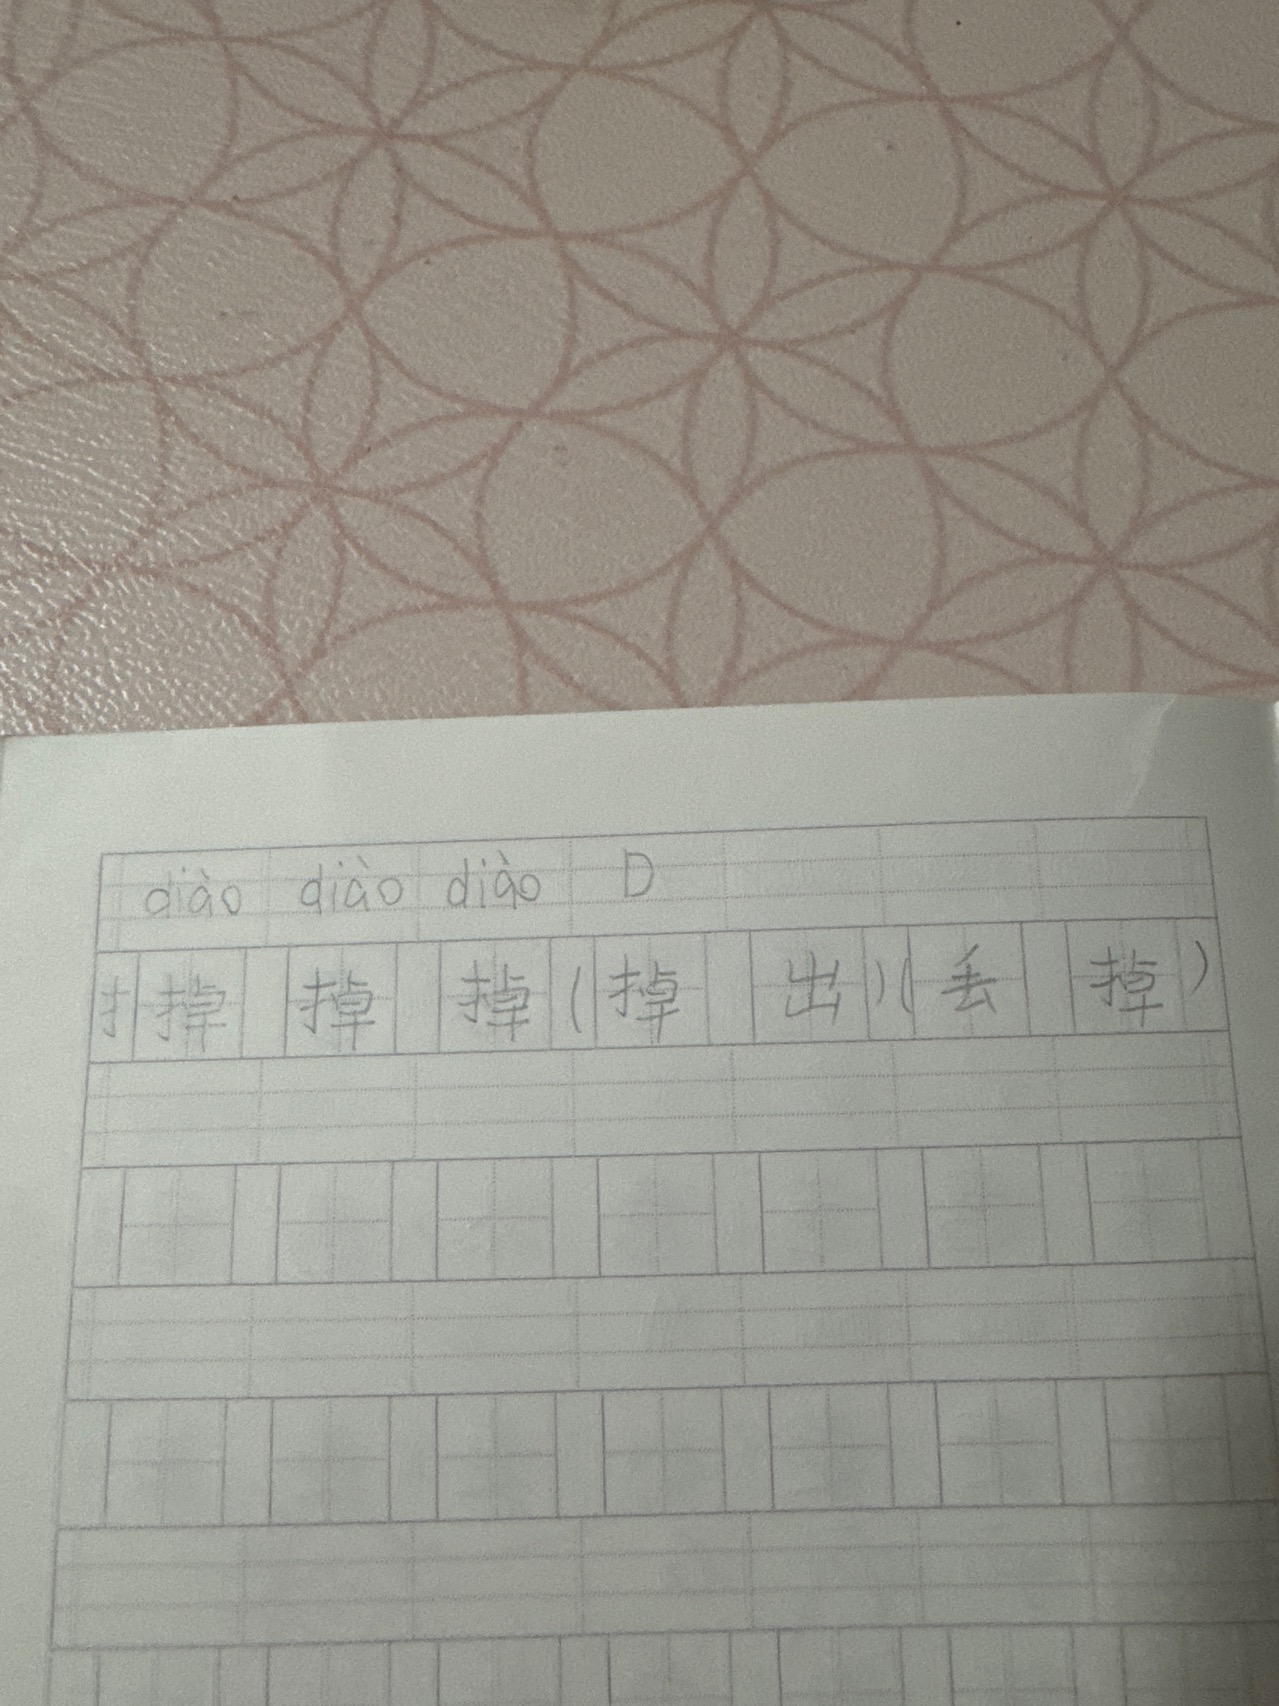 diào diào diào D
扌掉 掉 掉(掉 出)(丢 掉)